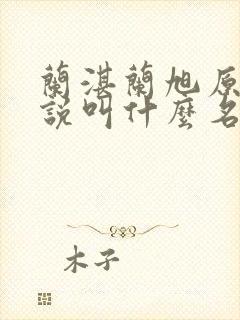 蘭湛蘭旭原
說叫什麼名
木子